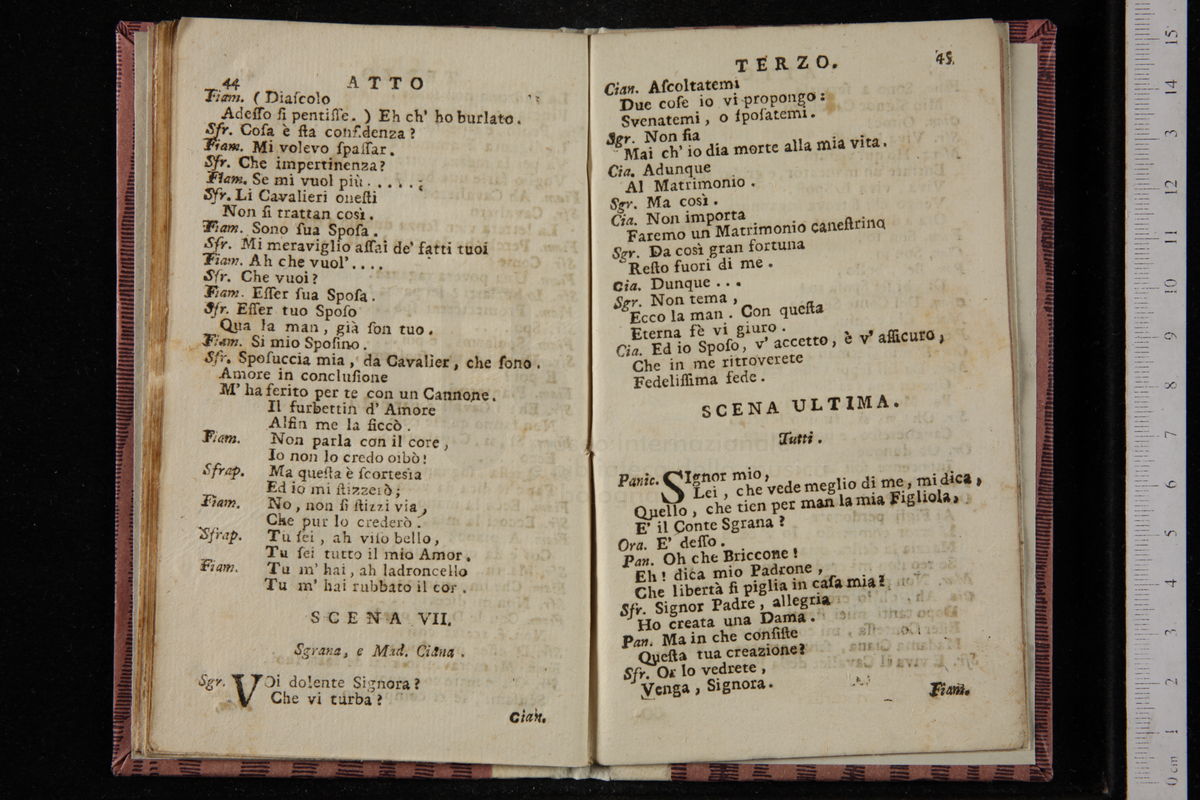 44 ATTO
Fiam. ( Diaſcolo
Adeſſo ſi pentiſſe. ) Eh ch' ho burlato.
Sfr. Coſa è ſta confidenza ?
Fiam. Mi volevo ſpaſſar.
Sfr. Che impertinenza?
Fiam. Se mi vuol più . . . . . ;
Sfr. Li Cavalieri oneſti
Non ſi trattan così.
Fiam. Sono ſua Spoſa.
Sfr. Mi meraviglio aſſai de' fatti tuoi
Fiam. Ah che vuol' . . . .
Sfr. Che vuoi?
Fiam. Eſſer ſua Spoſa.
Sfr. Eſſer tuo Spoſo
Qua la man, già ſon tuo.
Fiam. Si mio Spoſino.
Sfr. Spoſuccia mia, da Cavalier, che ſono.
Amore in concluſione
M' ha ferito per te con un Cannone.
Il furbettin d' Amore
Alfin me la ficcò.
Fiam. Non parla con il core,
Io non lo credo oibò!
Sfrap. Ma queſta è ſcortesìa
Ed io mi ſtizzerò;
Fiam. No, non ſi ſtizzi via,
Che pur lo crederò.
Sfrap. Tu ſei, ah viſo bello,
Tu ſei tutto il mio Amor.
Fiam. Tu m' hai, ah ladroncello
Tu m' hai rubbato il cor.
SCENA VII.
Sgrana, e Mad. Ciana.
Sgr. VOi dolente Signora?
Che vi turba?
Cian.
TERZO. 45.
Cian. Aſcoltatemi
Due coſe io vi propongo:
Svenatemi, o ſpoſatemi.
Sgr. Non ſia
Mai ch' io dia morte alla mia vita.
Cia. Adunque
Al Matrimonio.
Sgr. Ma così.
Cia. Non importa
Faremo un Matrimonio caneſtrino
Sgr. Da così gran fortuna
Reſto fuori di me.
Cia. Dunque . . .
Sgr. Non tema,
Ecco la man. Con queſta
Eterna fè vi giuro.
Cia. Ed io Spoſo, v' accetto, è v' aſſicuro,
Che in me ritroverete
Fedeliſſima fede.
SCENA ULTIMA.
Tutti.
Panic. SIgnor mio,
Lei, che vede meglio di me, mi dica,
Quello, che tien per man la mia Figliola,
E' il Conte Sgrana?
Ora. E' deſſo.
Pan. Oh che Briccone!
Eh! dica mio Padrone,
Che libertà ſi piglia in caſa mia?
Sfr. Signor Padre, allegria
Ho creata una Dama.
Pan. Ma in che conſiſte
Queſta tua creazione?
Sfr. Or lo vedrete,
Venga, Signora.
Fiam.